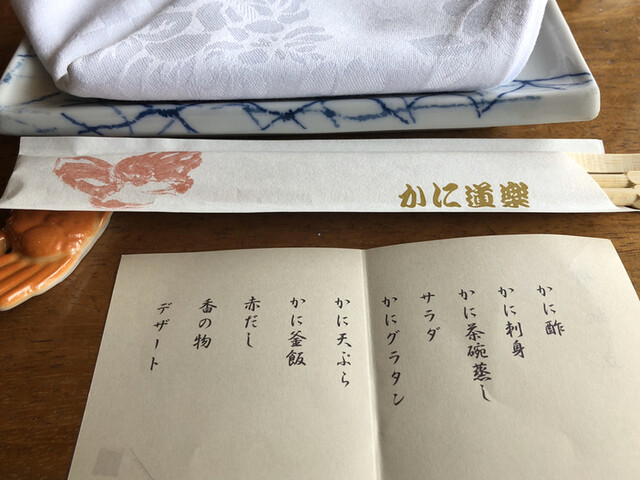 かに道樂
かに酢
かに刺身
かに茶碗蒸し
サラダ
かにグラタン
かに天ぷら
かに釜飯
赤だし
香の物
デザート